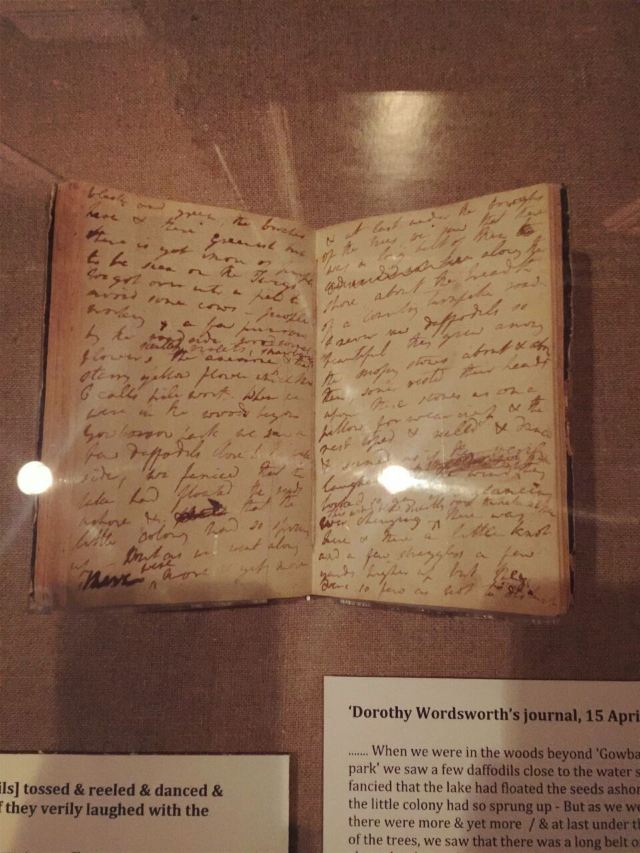 black and green, the birches
here & there greenish but
there is yet more of purple
to be seen on the Twigs
We got over into a field to
avoid some cows — people
working, a few primroses
by the roadside, woodsorrel
flowers, the anemone,
scentless violets, strawberries
starry yellow flower which Mrs
C calls pile wort. When we
were in the woods beyond
Gowbarrow park we saw a
few daffodils close to the water
side, we fancied that the
lake had floated the seeds
ashore & that the
little colony had so sprung
up — But as we went along
there were more & yet more
& at last under the boughs
of the trees, we saw that there
was a long belt of them
along the
shore about the breadth
of a country turnpike road
I never saw daffodils so
beautiful they grew among
the mossy stones about & about
them, some rested their heads
upon these stones as on a
pillow for weariness & the
rest tossed & reeled & danced
& seemed as if they verily
laughed with the wind
glancing
ever changing
there was
here & there a little knot
and a few stragglers a few
yards higher up but they
were so few as not to disturb
‘Dorothy Wordsworth’s journal, 15 Apri
....... When we were in the woods beyond 'Gowba
park' we saw a few daffodils close to the water s
fancied that the lake had floated the seeds ashor
the little colony had so sprung up - But as we we
there were more & yet more / & at last under th
of the trees, we saw that there was a long belt o
ils] tossed & reeled & danced &
f they verily laughed with the